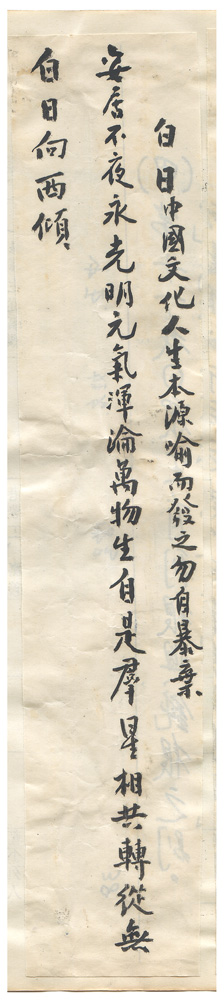 白日中國文化人生本源喻而發之勿自暴棄
安居不夜永光明元氣渾淪萬物生自是羣星相共轉從無
白日向西傾